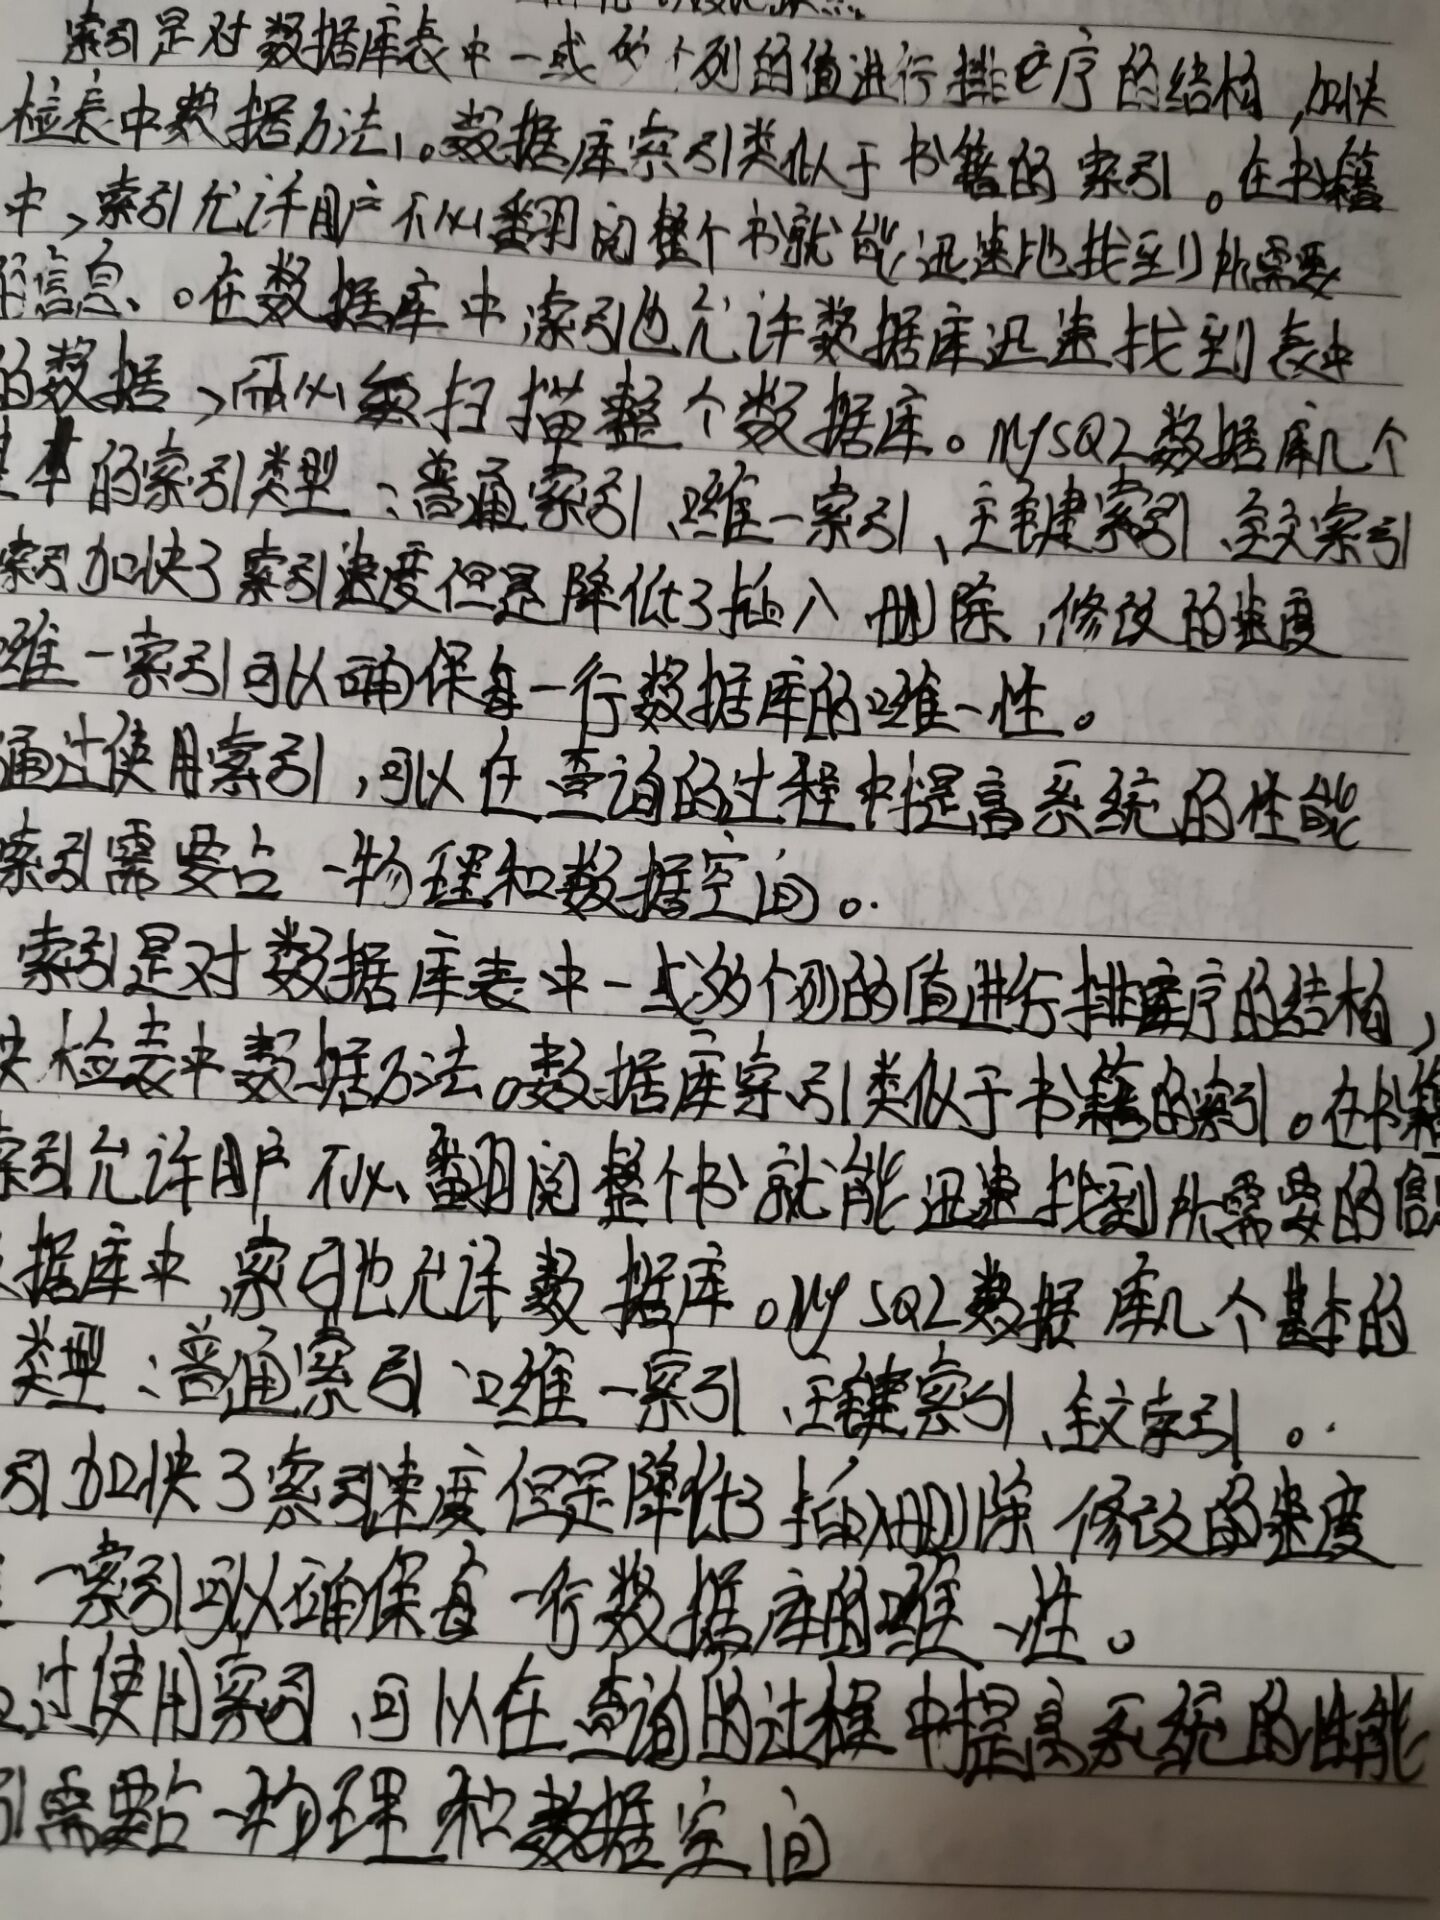 索引是对数据库表中一或多个列的值进行排序的结构,加快
检表中数据方法。数据库索引类似于书籍的索引。在书籍
中,索引允许用户不必翻阅整个书就能迅速地找到所需要
的信息。在数据库中索引也允许数据库迅速找到表中
的数据,而必须扫描整个数据库。MySQL数据库几个
基本的索引类型:普通索引、唯一索引、主键索引、全文索引
索引加快了索引速度但是降低了插入删除,修改的速度
唯一索引可以确保每一行数据库的唯一性。
通过使用索引,可以在查询的过程中提高系统的性能
索引需要占一物理和数据空间。
索引是对数据库表中一或多个列的值进行排序的结构,
快检表中数据方法。数据库索引类似于书籍的索引。在书籍
索引允许用户不必翻阅整个书就能迅速找到所需要的信息
据库中,索引也允许数据库。MySQL数据库几个基本的
类型:普通索引、唯一索引、主键索引、全文索引。
引加快了索引速度但是降低了插入删除修改的速度
一索引可以确保每一行数据库的唯一性。
过使用索引,可以在查询的过程中提高系统的性能
引需要占一物理和数据空间